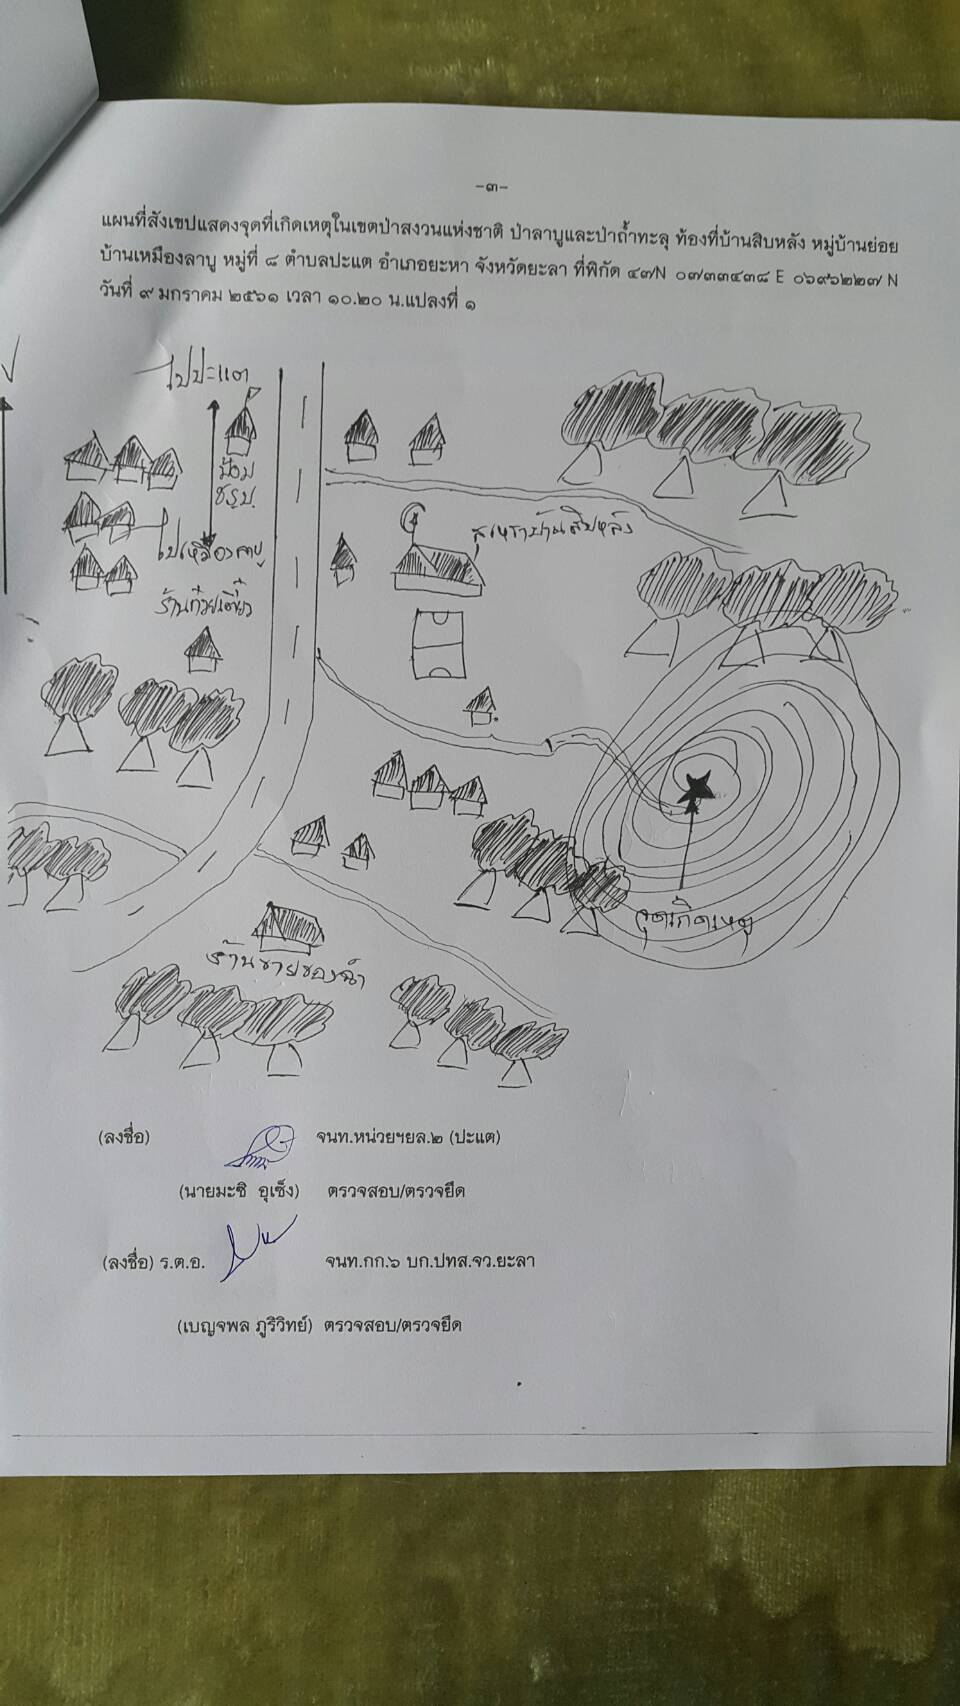 -๓-
แผนที่สังเขปแสดงจุดที่เกิดเหตุในเขตป่าสงวนแห่งชาติ ป่าลาบูและป่าถ้ำทะลุ ท้องที่บ้านสิบหลัง หมู่บ้านย่อย
บ้านเหมืองลาบู หมู่ที่ ๘ ตำบลปะแต อำเภอยะหา จังหวัดยะลา ที่พิกัด ๔๗N ๐๗๓๓๔๓๘ E ๐๖๙๖๒๒๗ N
วันที่ ๙ มกราคม ๒๕๖๑ เวลา ๑๐.๒๐ น.แปลงที่ ๑
ไปปะแต
ป้อม
ชรบ.
สุเหร่าบ้านสิบหลัง
ไปเหมืองลาบู
ร้านก๋วยเตี๋ยว
จุดเกิดเหตุ
ร้านขายของชำ
(ลงชื่อ) จนท.หน่วยฯยล.๒ (ปะแต)
(นายมะซิ อุเซ็ง) ตรวจสอบ/ตรวจยึด
(ลงชื่อ) ร.ต.อ. จนท.กก.๖ บก.ปทส.จว.ยะลา
(เบญจพล ภูริวิทย์) ตรวจสอบ/ตรวจยึด